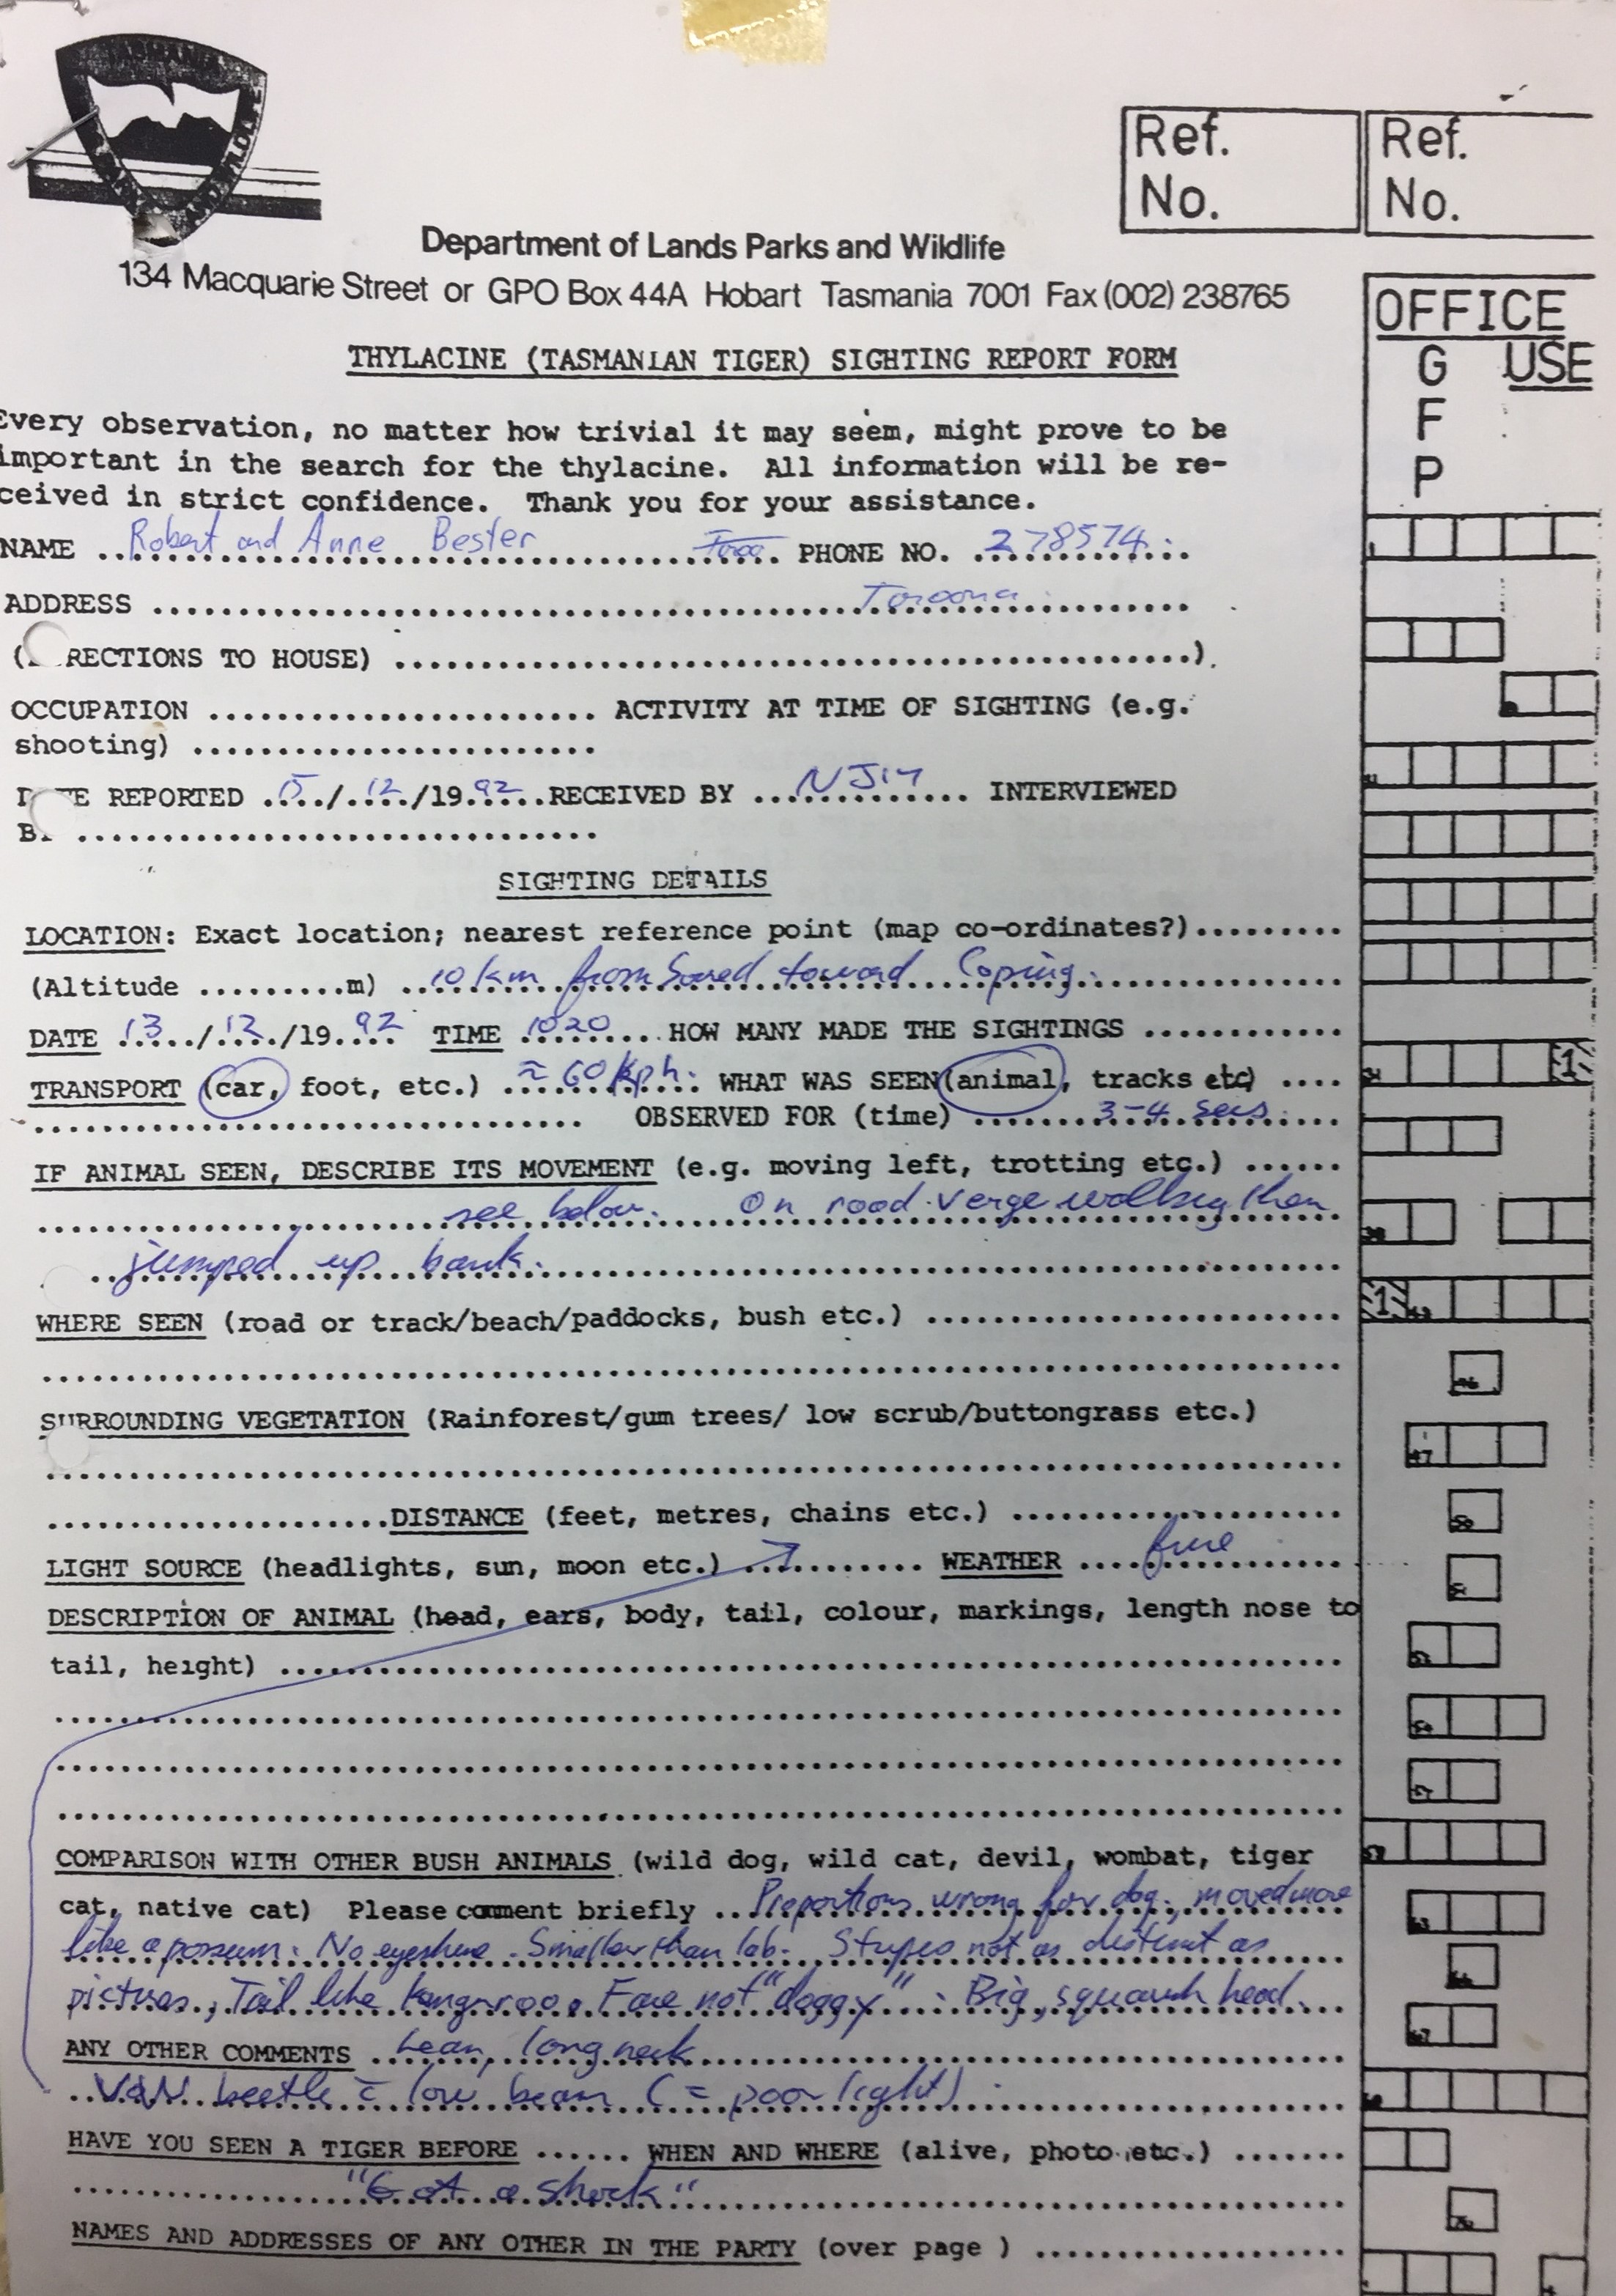 TASMANIA
Ref.
No.
Ref.
No.
Department of Lands Parks and Wildlife
134 Macquarie Street or GPO Box 44A Hobart Tasmania 7001 Fax (002) 238765
OFFICE
USE
G
F
P
THYLACINE (TASMANIAN TIGER) SIGHTING REPORT FORM
Every observation, no matter how trivial it may seem, might prove to be
important in the search for the thylacine. All information will be re-
ceived in strict confidence. Thank you for your assistance.
NAME .. Robert and Anne Bester PHONE NO. 278574
ADDRESS .......... Taroona
( RECTIONS TO HOUSE) ..........).
OCCUPATION .......... ACTIVITY AT TIME OF SIGHTING (e.g.
shooting) ..........
D TE REPORTED 15/12/1992 RECEIVED BY NJM INTERVIEWED
B ..........
SIGHTING DETAILS
LOCATION: Exact location; nearest reference point (map co-ordinates?)..........
(Altitude .........m) 10 km from Sorell toward Coping.
DATE 13/12/1992 TIME 1020 HOW MANY MADE THE SIGHTINGS ..........
TRANSPORT (car, foot, etc.) ≈ 60 kph. WHAT WAS SEEN (animal, tracks etc) ....
.......... OBSERVED FOR (time) 3-4 secs.
IF ANIMAL SEEN, DESCRIBE ITS MOVEMENT (e.g. moving left, trotting etc.) ......
see below. On road verge walking then
jumped up bank.
WHERE SEEN (road or track/beach/paddocks, bush etc.) ..........
SURROUNDING VEGETATION (Rainforest/gum trees/ low scrub/buttongrass etc.)
..........DISTANCE (feet, metres, chains etc.) ..........
LIGHT SOURCE (headlights, sun, moon etc.) .......... WEATHER fine
DESCRIPTION OF ANIMAL (head, ears, body, tail, colour, markings, length nose to
tail, height) ..........
COMPARISON WITH OTHER BUSH ANIMALS (wild dog, wild cat, devil, wombat, tiger
cat, native cat) Please comment briefly ... Proportions wrong for dog, moved more
like a possum. No eyeshine. Smaller than lab. Stripes not as distinct as
pictures, Tail like kangaroo. Face not "doggy". Big, squarish head.
ANY OTHER COMMENTS Lean, long neck
VW beetle c̄ low beam (= poor light).
HAVE YOU SEEN A TIGER BEFORE ...... WHEN AND WHERE (alive, photo etc.) .......
"Got a shock"
NAMES AND ADDRESSES OF ANY OTHER IN THE PARTY (over page ) ..........